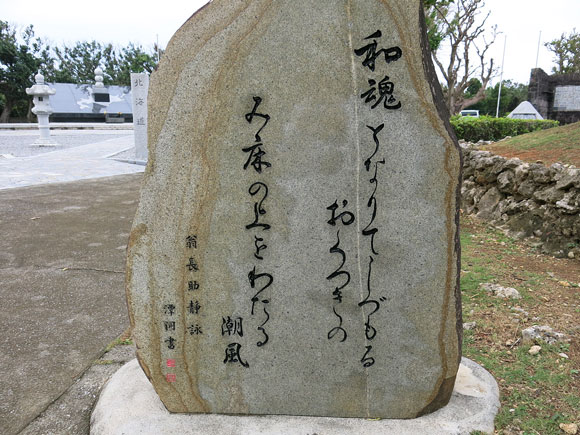 和魂
となりてしづもる
おくつきの
み床の上をわたる
潮風
翁長助静詠
澤洞書
北海道